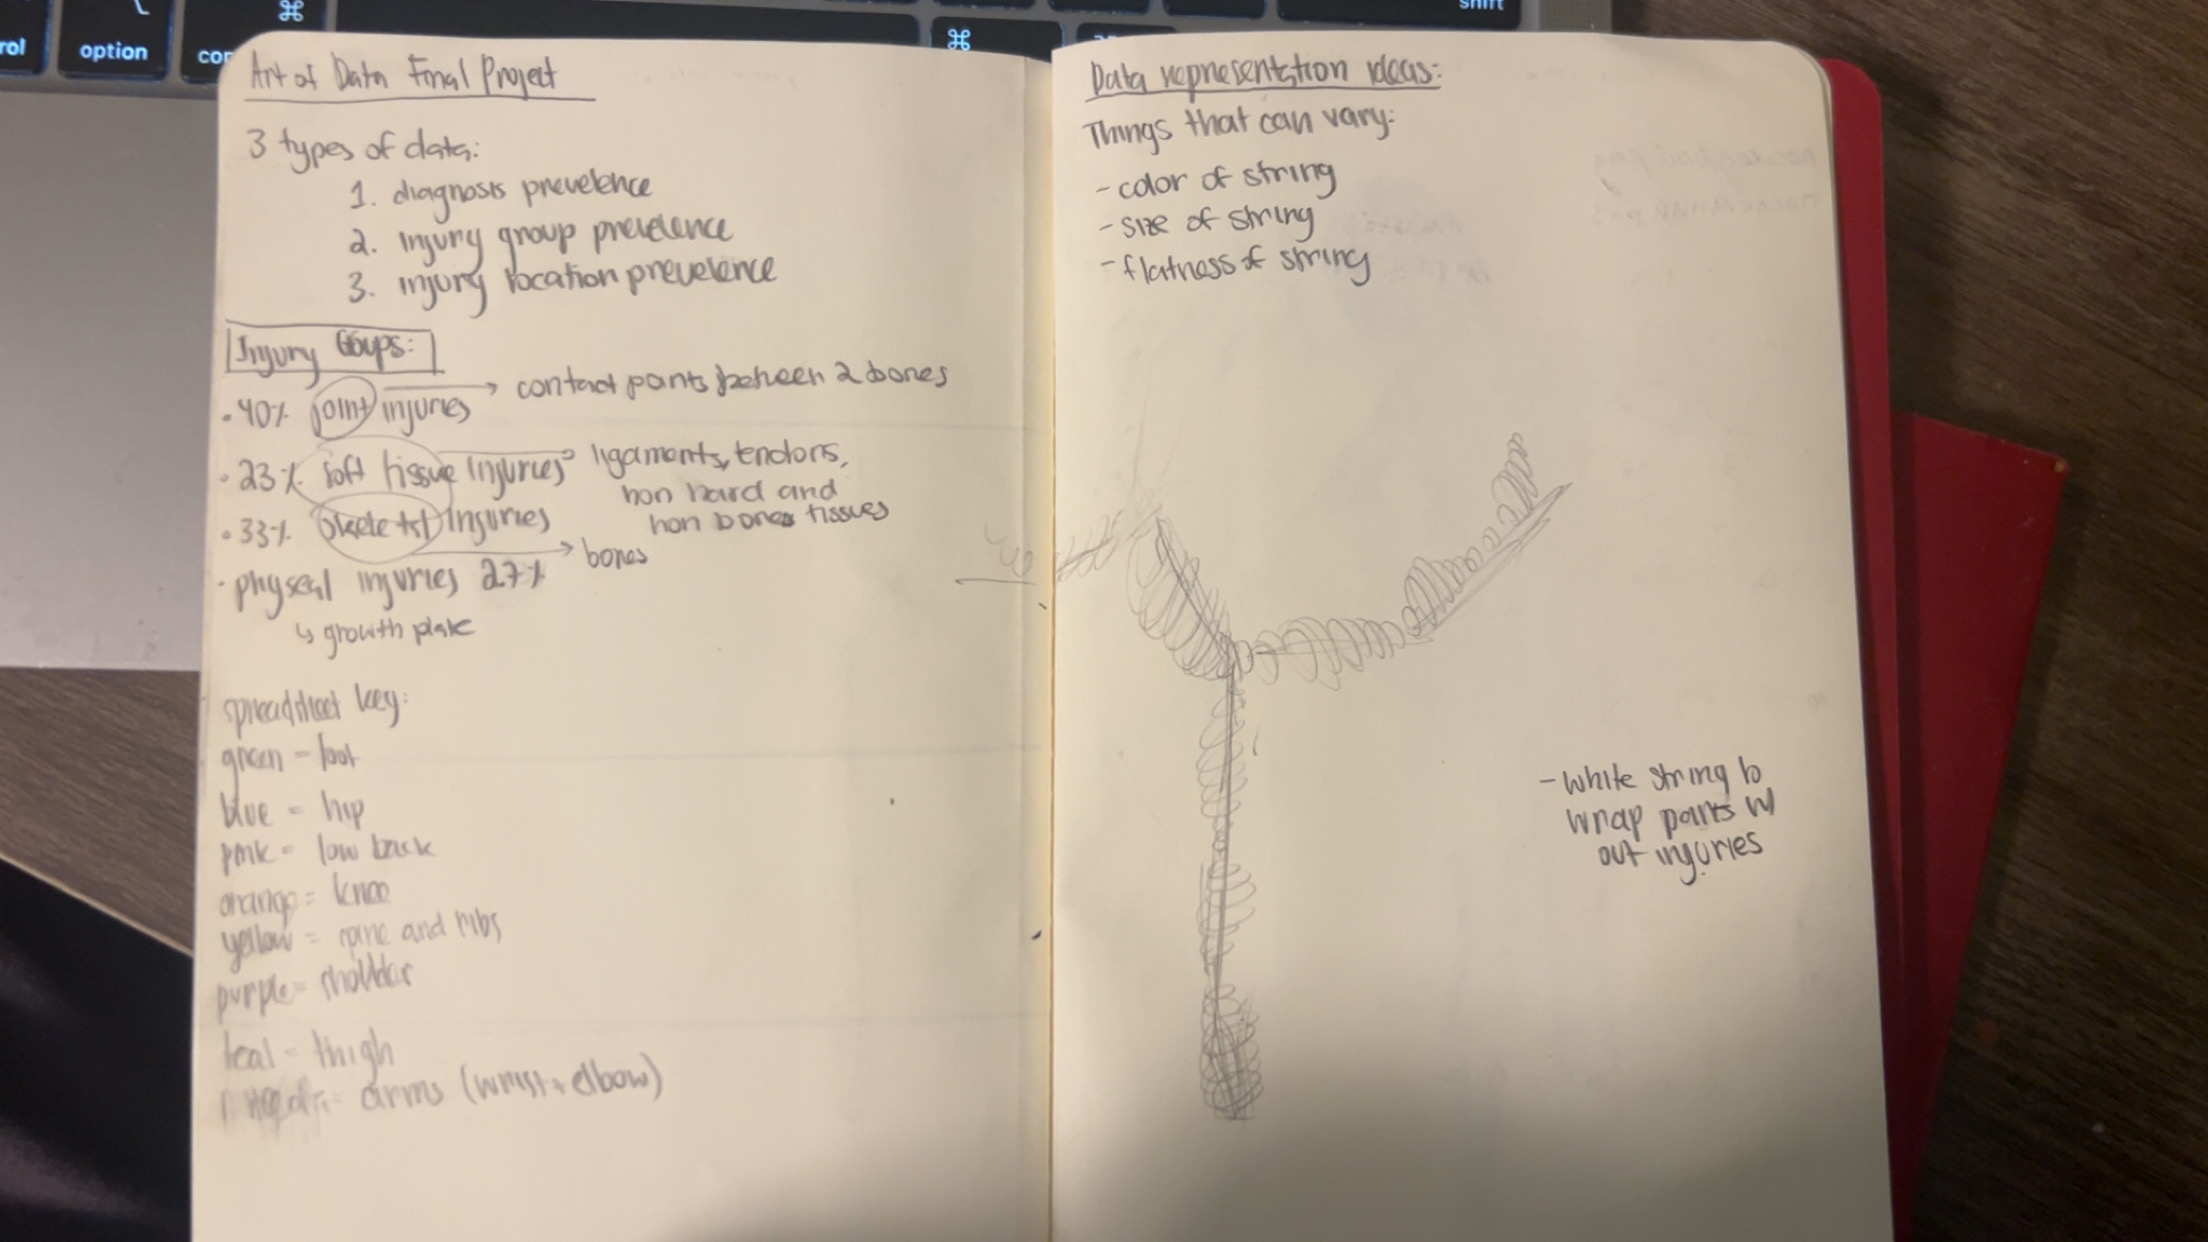 option
⌘
⌘
shift
Art of Data Final Project
3 types of data:
1. diagnosis prevelence
2. Injury group prevelence
3. injury location prevelence
Injury Goups:
• 40% joint injuries → contact points between 2 bones
• 23% soft tissue injuries → ligaments, tendons,
non hard and
non bones tissues
• 33% skeletal injuries → bones
• physeal injuries 27%
↳ growth plate
spreadsheet key:
green - foot
blue = hip
pink = low back
orange = knee
yellow = spine and ribs
purple = shoulder
teal - thigh
= arms (wrist + elbow)
Data representation ideas:
Things that can vary:
- color of string
- size of string
- flatness of string
- white string to
wrap parts w/
out injuries